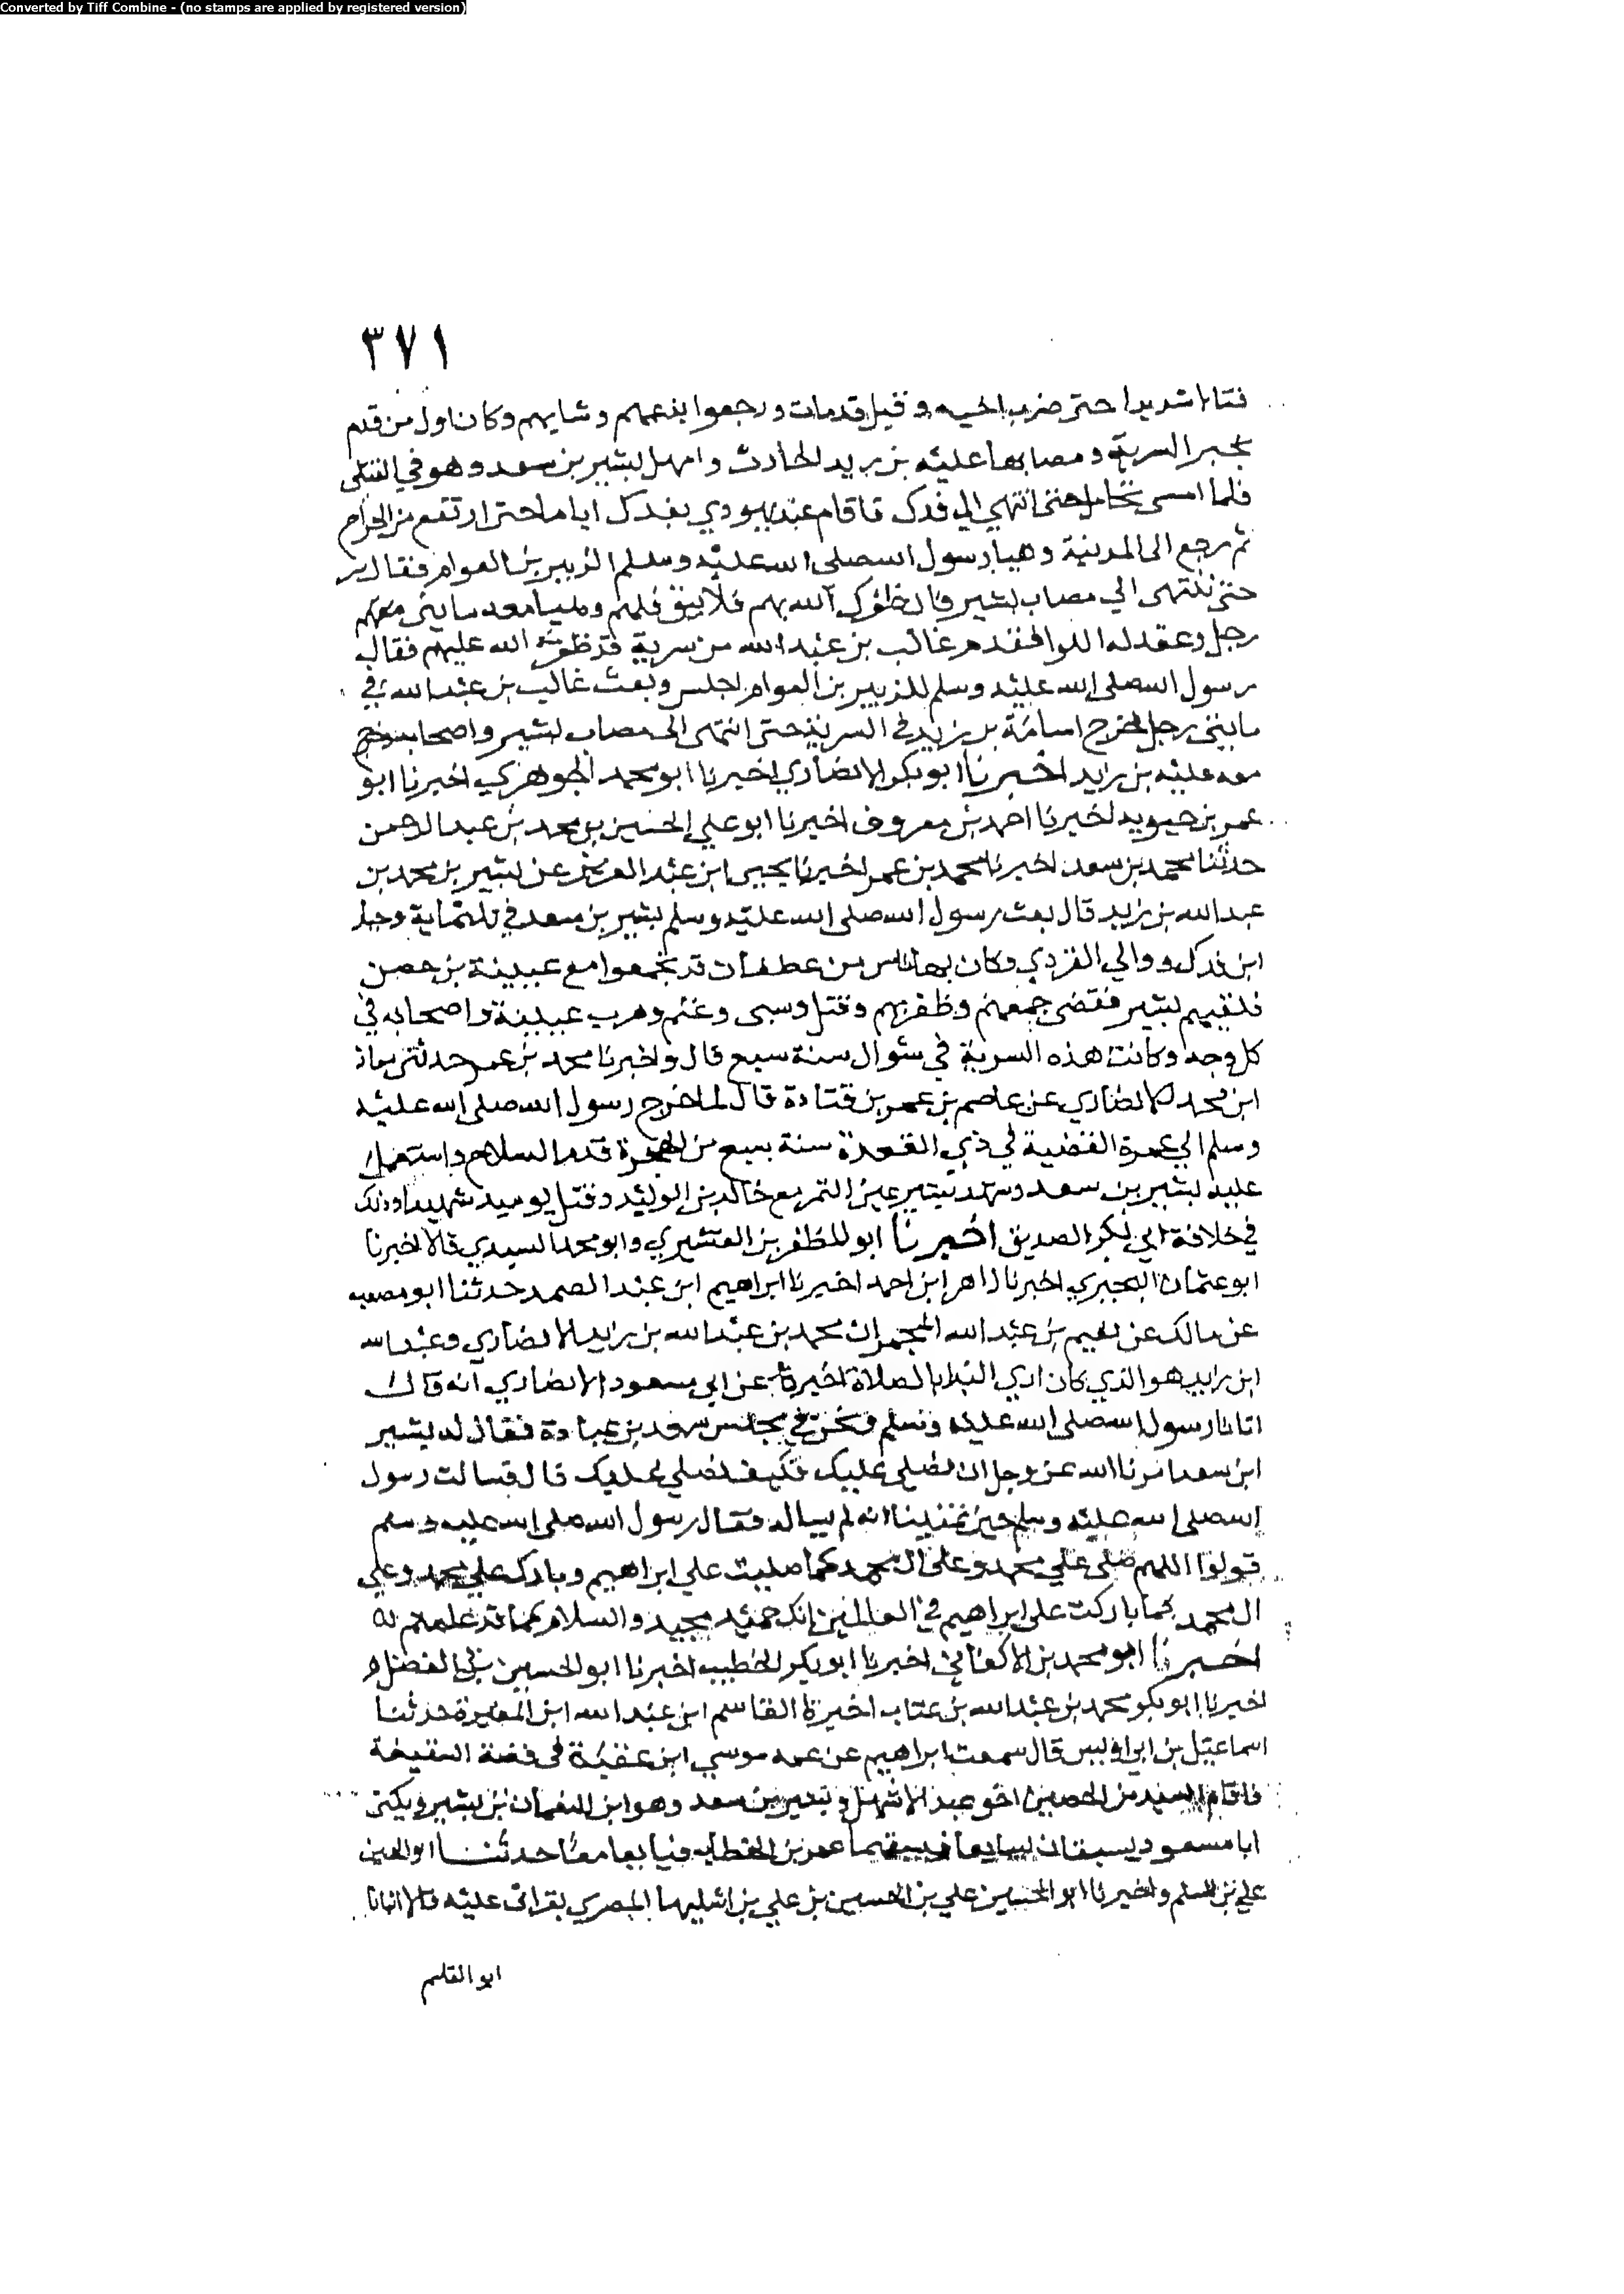 Converted by Tiff Combine - (no stamps are applied by registered version)
٣٧١
قتالا شديدا حتى ضرب كعبه وقيل قد مات ورجعوا بنعمهم وشايهم وكان اول من قدم
بخبر السرية ومصابها علبه بن زيد الحارث وامهل بشير بن سعد وهو في القتلى
فلما امسى تحامل حتى انتهى الى فدك فاقام عند يهودي بفدك اياما حتى ارتفع من الجراح
ثم رجع الى المدينة وهيا رسول الله صلى الله عليه وسلم الزبير بن العوام فقال سر
حتى تنتهى الي مصاب بشير فان ظفرك الله بهم فلا تبق فيهم وهيا معه مايتى
رجل وعقد له اللوا فقدم غالب بن عبد الله من سرية قد ظفره الله عليهم فقال
رسول الله صلى الله عليه وسلم للزبير بن العوام اجلس وبعث غالب بن عبد الله في
مايتى رجل فخرج اسامة بن زيد في السرية حتى انتهى الى مصاب بشير واصحابه وخرج
معه علبه بن زيد اخبرنا ابو بكر الانصاري اخبرنا ابو محمد الجوهري اخبرنا ابو
عمر بن حيويه اخبرنا احمد بن معروف اخبرنا ابو علي الحسين بن محمد بن عبد الرحمن
حدثنا محمد بن سعد اخبرنا محمد بن عمر اخبرنا يحيى ابن عبد العزيز عن بشير بن محمد بن
عبد الله بن زيد قال بعث رسول الله صلى الله عليه وسلم بشير بن سعد في ثلثماية رجل
ابن فدك ووالي القردي وكان بها ناس من غطفان قد تجمعوا مع عيينة بن حصن
فلقيهم بشير ففض جمعهم وظفر بهم وقتل وسبى وغنم وهرب عيينة واصحابه في
كل وجه وكانت هذه السرية في شوال سنة سبع قال واخبرنا محمد بن عمر حدثني معاذ
ابن محمد الانصاري عن عاصم بن عمر بن قتادة قال لما خرج رسول الله صلى الله عليه
وسلم الي عمرة القضية في ذي القعدة سنة سبع من الهجرة قدم السلاح واستعمل
عليه بشير بن سعد وشهد بشير عين التمر مع خالد بن الوليد وقتل يوميذ شهيدا وذلك
في خلافة ابي بكر الصديق اخبرنا ابو المظفر بن القشيري وابو محمد السيدي قالا اخبرنا
ابو عثمان البحيري اخبرنا زاهر ابن احمد اخبرنا ابراهيم ابن عبد الصمد حدثنا ابو مصعب
عن مالك عن نعيم بن عبد الله المجمر ان محمد بن عبد الله بن زيد الانصاري وعبد الله
ابن زيد هو الذي كان اري الندا بالصلاة اخبره عن ابي مسعود الانصاري انه قال
اتانا رسول الله صلى الله عليه وسلم ونحن في مجلس سعد بن عبادة فقال له بشير
ابن سعد امرنا الله عز وجل ان نصلى عليك فكيف نصلي عليك قال فسالت رسول
الله صلى الله عليه وسلم حين تمنينا انه لم يساله فقال رسول الله صلى الله عليه وسلم
قولوا اللهم صلى علي محمد وعلى ال محمد كما صليت علي ابراهيم وبارك علي محمد وعلي
ال محمد كما باركت على ابراهيم في العالمين انك حميد مجيد والسلام كما قد علمتم
اخبرنا ابو محمد بن الاكفاني اخبرنا ابو بكر الخطيب اخبرنا ابو الحسين بن الفضل
اخبرنا ابو بكر محمد بن عبد الله بن عتاب اخبرنا القاسم ابن عبد الله ابن المغيرة حدثنا
اسماعيل بن ابي اويس قال سمعت ابراهيم عن عمه موسي ابن عقبة في قصة السقيفة
فاقام اسيد من الحصين اخو عبد الاشهل وبشير بن سعد وهو ابن النعمان بن بشير ويكنى
ابا مسعود يستبقان ليبايعا فسبقهما عمر بن الخطاب فبايعا معا حدثنا ابو الحسن
علي بن المسلم واخبرنا ابو الحسين علي بن الحسين بن علي بن اشليها المصري بقراتى عليه قالا انبانا
ابو القسم